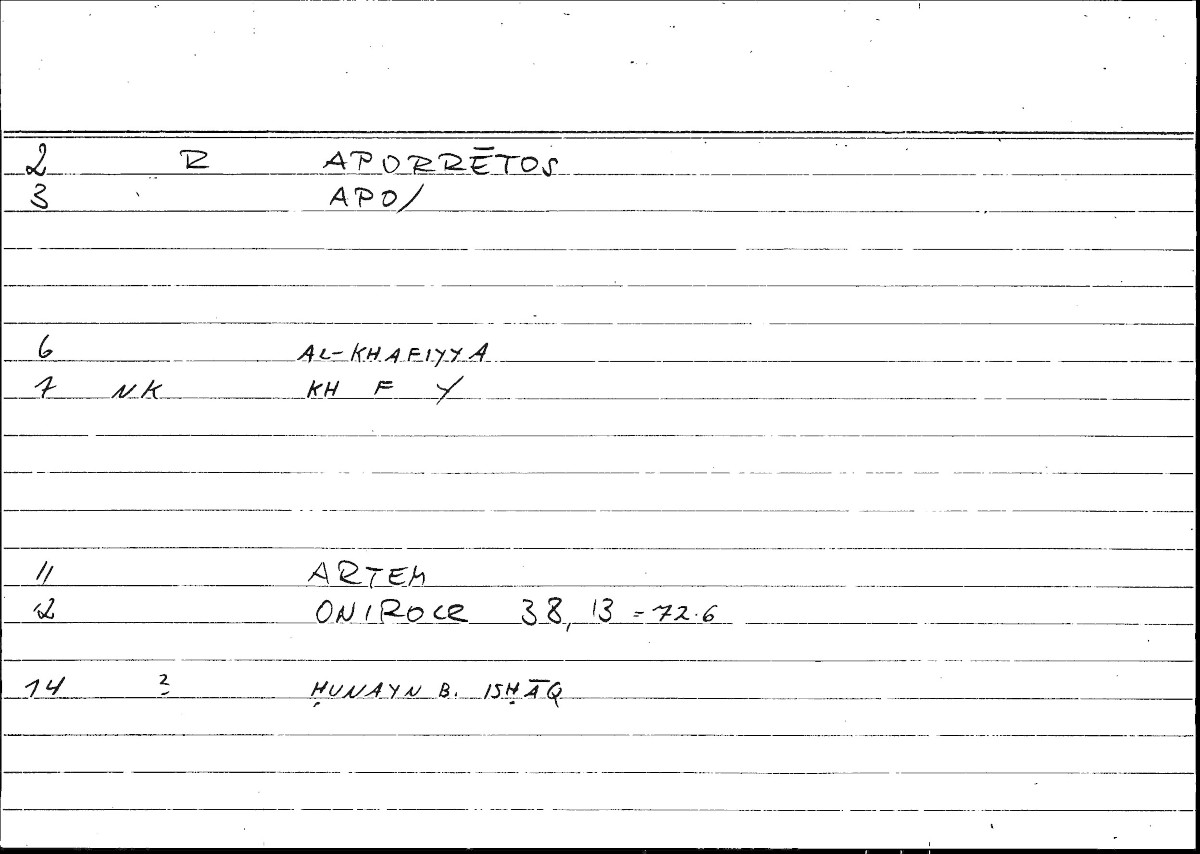 2 R APORRĒTOS
3 APO/
6 AL-KHAFIYYA
7 NK KH F Y
11 ARTEM
12 ONIROCR 38, 13 = 72.6
14 2 ḤUNAYN B. ISḤĀQ